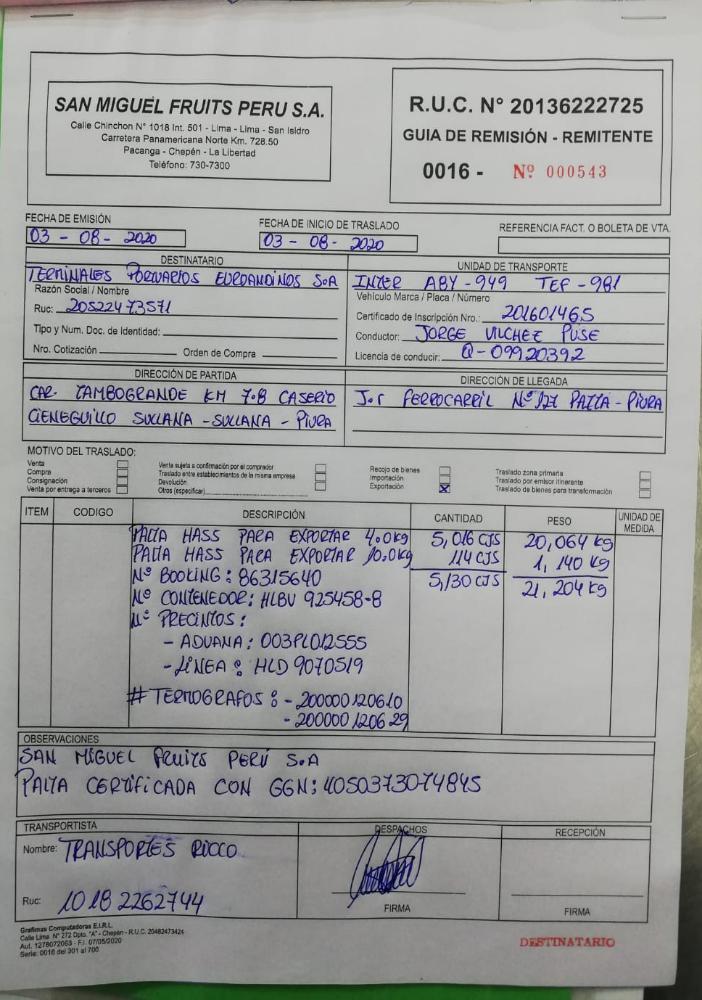 SAN MIGUEL FRUITS PERU S.A.
Calle Chinchon N° 1018 Int. 501 - Lima - Lima - San Isidro
Carretera Panamericana Norte Km. 728.50
Pacanga - Chepén - La Libertad
Teléfono: 730-7300
R.U.C. N° 20136222725
GUIA DE REMISIÓN - REMITENTE
0016 - Nº 000543
FECHA DE EMISIÓN
03 - 08 - 2020
FECHA DE INICIO DE TRASLADO
03 - 08 - 2020
REFERENCIA FACT. O BOLETA DE VTA.
DESTINATARIO
TERMINALES PORTUARIOS EUROANDINOS S.A
Razón Social / Nombre
Ruc: 20522473571
Tipo y Num. Doc. de Identidad:
Nro. Cotización Orden de Compra
UNIDAD DE TRANSPORTE
INTER ABY-949 TEF-981
Vehículo Marca / Placa / Número
Certificado de Inscripción Nro.: 201601465
Conductor: JORGE VILCHEZ PUSE
Licencia de conducir: Q-09920392
DIRECCIÓN DE PARTIDA
CAR. TAMBOGRANDE KM 7.8 CASERIO
CIENEGUILLO SULLANA - SULLANA - PIURA
DIRECCIÓN DE LLEGADA
J.r FERROCARRIL Nº 127 PAITA - PIURA
MOTIVO DEL TRASLADO:
Venta
Compra
Consignación
Venta por entrega a terceros
Venta sujeta a confirmación por el comprador
Traslado entre establecimientos de la misma empresa
Devolución
Otros (especificar)
Recojo de bienes
Importación
Exportación X
Traslado zona primaria
Traslado por emisor itinerante
Traslado de bienes para transformación
ITEM CODIGO DESCRIPCIÓN CANTIDAD PESO UNIDAD DE MEDIDA
PALTA HASS PARA EXPORTAR 4.0kg 5,016 CJS 20,064 kg
PALTA HASS PARA EXPORTAR 10.0kg 114 CJS 1,140 kg
Nº BOOKING: 86315640 5,130 CJS 21,204 kg
Nº CONTENEDOR: HLBU 925458-8
Nº PRECINTOS:
- ADUANA: 003PL012555
- LINEA: HLD 9070519
# TERMOGRAFOS: - 200000120610
- 200000120629
OBSERVACIONES
SAN MIGUEL FRUITS PERÚ S.A
PALTA CERTIFICADA CON GGN: 4050373074845
TRANSPORTISTA
Nombre: TRANSPORTES ROCCO
Ruc: 10182262744
DESPACHOS
FIRMA
RECEPCIÓN
FIRMA
Grafimas Computadoras E.I.R.L.
Calle Lima N° 272 Dpto. "A" - Chepén - R.U.C. 20482473424
Aut. 1278072063 - F.I. 07/05/2020
Serie: 0016 del 301 al 700
DESTINATARIO